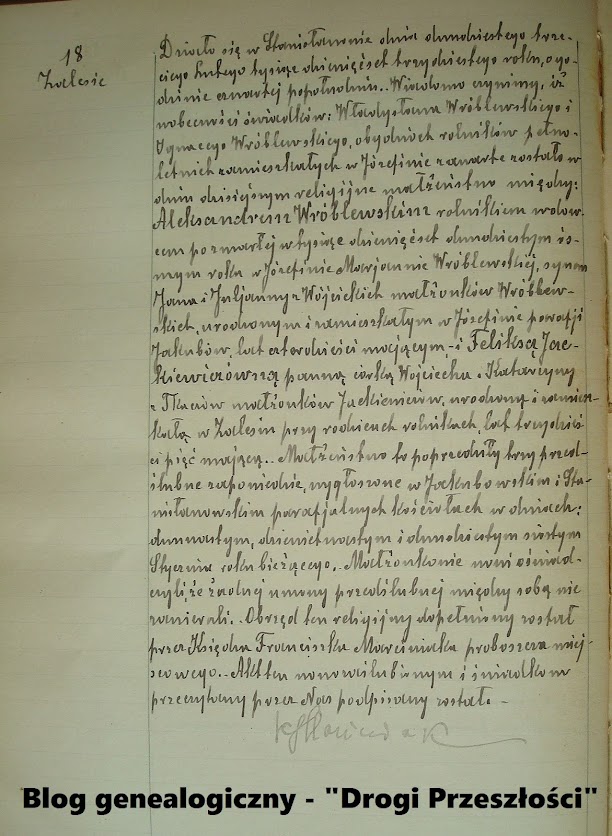 18
Zalesie
Działo się w Stanisławowie dnia dwudziestego trze-
ciego Lutego tysiąc dziewięćset trzydziestego roku, o go-
dzinie czwartej popołudniu. Wiadomo czynimy, iż
w obecności świadków: Władysława Wróblewskiego i
Ignacego Wróblewskiego, obydwóch rolników pełno-
letnich zamieszkałych w Józefinie zawarte zostało w
dniu dzisiejszym religijne małżeństwo między:
Aleksandrem Wróblewskim rolnikiem wdow-
cem po zmarłej w tysiąc dziewięćset dwudziestym ós-
mym roku w Józefinie Marjannie Wróblewskiej, synem
Jana i Juljanny z Wójcickich małżonków Wróblew-
skich, urodzonym i zamieszkałym w Józefinie parafji
Jakubów, lat czterdzieści mającym, – i Feliksą Jac-
kiewiczówną panną córką Wojciecha i Katarzyny
z Tkaczów małżonków Jackiewiczów, urodzoną i zamiesz-
kałą w Zalesiu przy rodzicach rolnikach, lat trzydzieś-
ci pięć mającą. – Małżeństwo to poprzedziły trzy przed-
ślubne zapowiedzie, wygłoszone w Jakubowskim i Sta-
nisławowskim parafjalnych kościołach w dniach:
dwunastym, dziewiętnastym i dwudziestym szóstym
Stycznia roku bieżącego. – Małżonkowie nowi oświad-
czyli, że żadnej umowy przedślubnej między sobą nie
zawierali. – Obrzęd ten religijny dopełniony został
przez Księdza Franciszka Marciniaka proboszcza miej-
scowego. – Akt ten nowozaślubionym i świadkom
przeczytany przez Nas podpisany został. –
Blog genealogiczny - "Drogi Przeszłości"